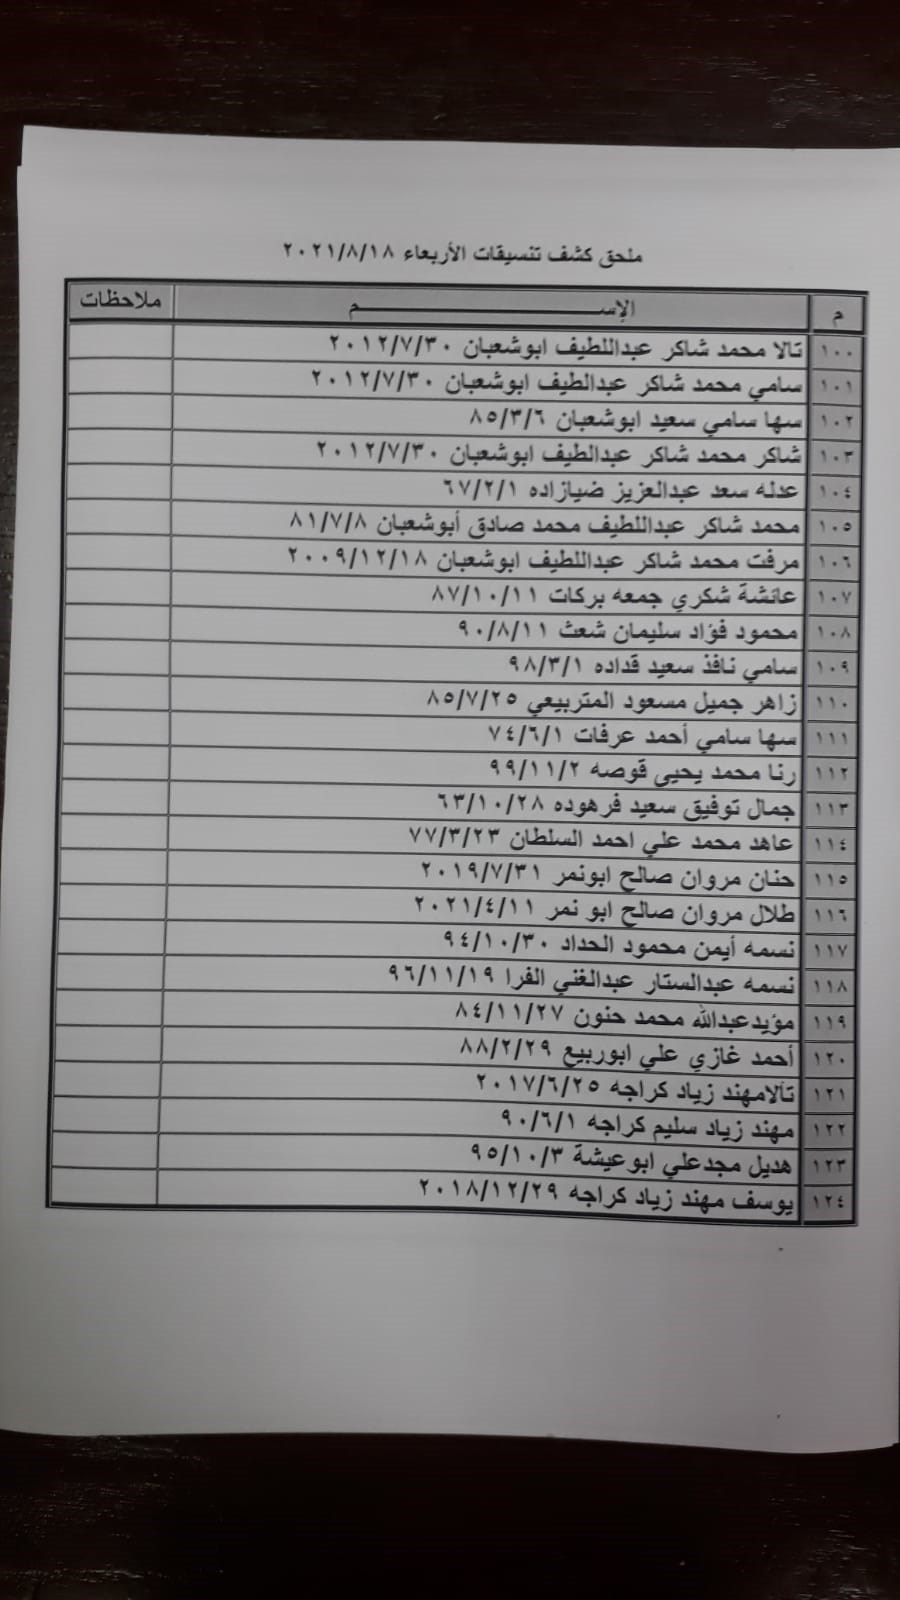 ملحق كشف تنسيقات الأربعاء ٢٠٢١/٨/١٨
م الإســــــــــــم ملاحظات
١٠٠ تالا محمد شاكر عبداللطيف ابوشعبان ٢٠١٢/٧/٣٠
١٠١ سامي محمد شاكر عبدالطيف ابوشعبان ٢٠١٢/٧/٣٠
١٠٢ سها سامي سعيد ابوشعبان ٨٥/٣/٦
١٠٣ شاكر محمد شاكر عبدالطيف ابوشعبان ٢٠١٢/٧/٣٠
١٠٤ عدله سعد عبدالعزيز ضيازاده ٦٧/٢/١
١٠٥ محمد شاكر عبداللطيف محمد صادق أبوشعبان ٨١/٧/٨
١٠٦ مرفت محمد شاكر عبداللطيف ابوشعبان ٢٠٠٩/١٢/١٨
١٠٧ عائشة شكري جمعه بركات ٨٧/١٠/١١
١٠٨ محمود فؤاد سليمان شعث ٩٠/٨/١١
١٠٩ سامي نافذ سعيد قداده ٩٨/٣/١
١١٠ زاهر جميل مسعود المتربيعي ٨٥/٧/٢٥
١١١ سها سامي أحمد عرفات ٧٤/٦/١
١١٢ رنا محمد يحيى قوصه ٩٩/١١/٢
١١٣ جمال توفيق سعيد فرهوده ٦٣/١٠/٢٨
١١٤ عاهد محمد علي احمد السلطان ٧٧/٣/٢٣
١١٥ حنان مروان صالح ابونمر ٢٠١٩/٧/٣١
١١٦ طلال مروان صالح ابو نمر ٢٠٢١/٤/١١
١١٧ نسمه أيمن محمود الحداد ٩٤/١٠/٣٠
١١٨ نسمه عبدالستار عبدالغني الفرا ٩٦/١١/١٩
١١٩ مؤيدعبدالله محمد حنون ٨٤/١١/٢٧
١٢٠ أحمد غازي علي ابوربيع ٨٨/٢/٢٩
١٢١ تآلامهند زياد كراجه ٢٠١٧/٦/٢٥
١٢٢ مهند زياد سليم كراجه ٩٠/٦/١
١٢٣ هديل مجدعلي ابوعيشة ٩٥/١٠/٣
١٢٤ يوسف مهند زياد كراجه ٢٠١٨/١٢/٢٩